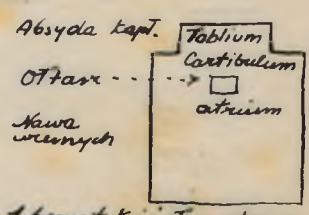 Absyda kapł. Tablium
Cartibulum
Ołtarz
atrium
Nawa
wiernych